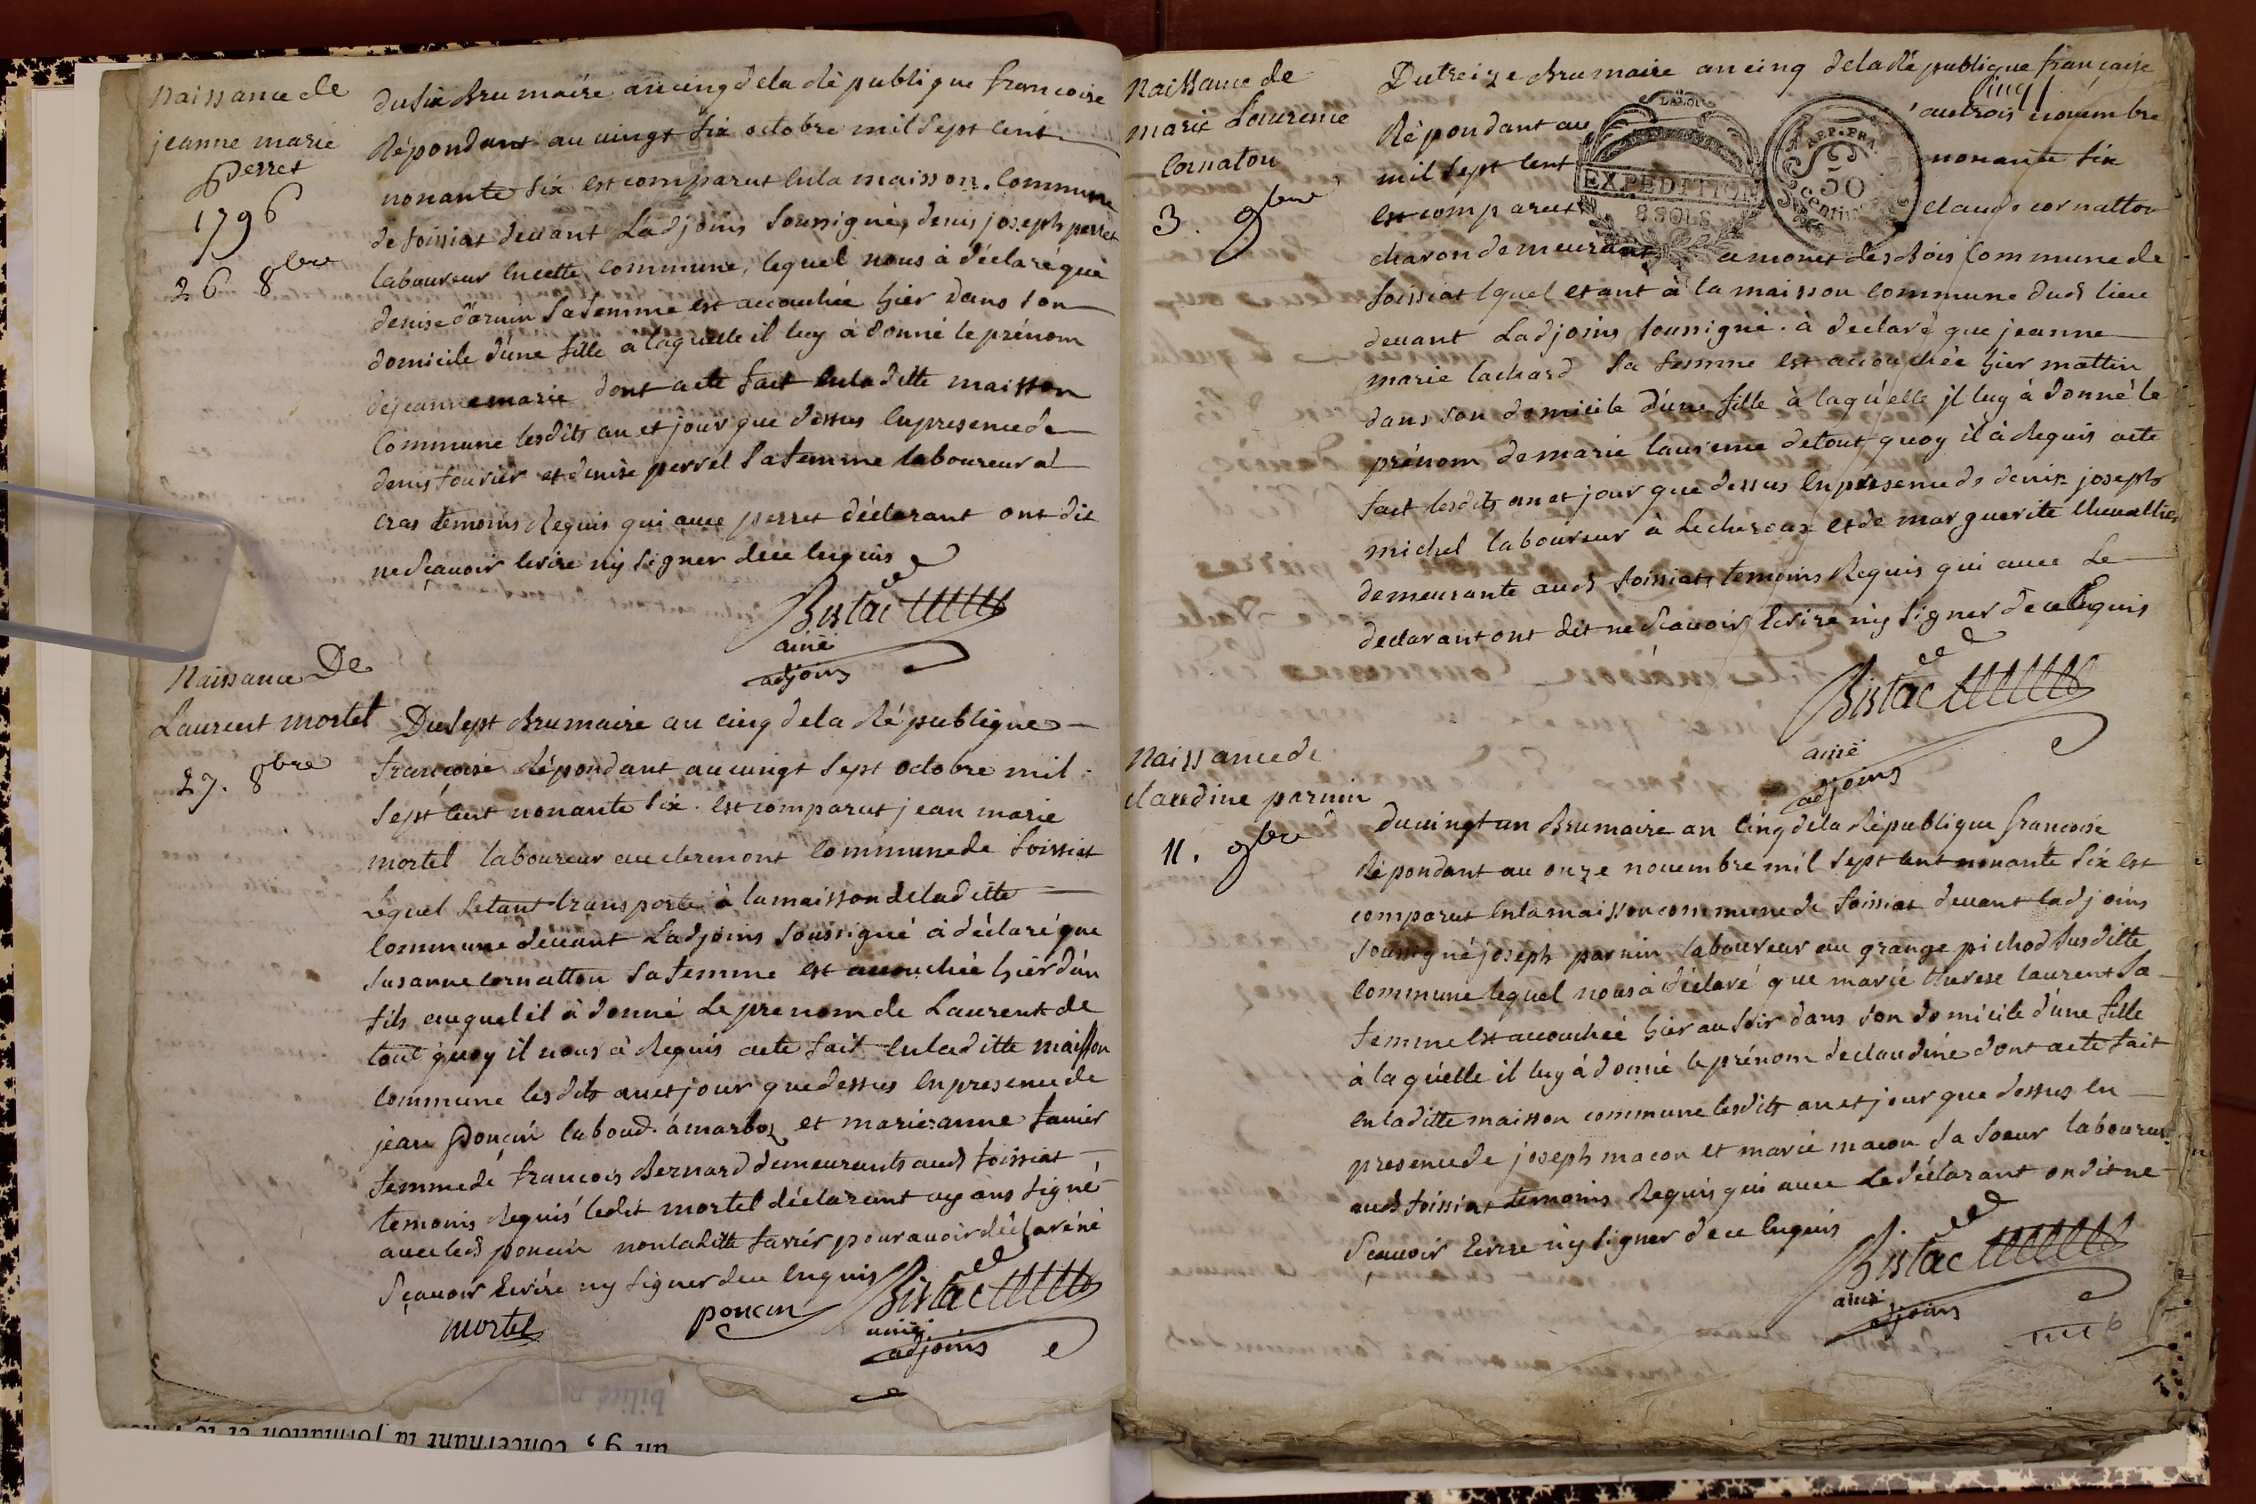 Naissance de
jeanne marie
Perret
1796
26 8bre
du six Brumaire an cinq de la République francoise
Répondant au vingt six octobre mil sept cent
nonante six est comparut en la maisson commune
de foissiat devant Ladjoins soussigné, denis joseph perret
laboureur en cette commune, lequel nous à déclaré que
denise sa femme est accouchée hier dans son
domicile d'une fille a laquelle il luy à donné le prénom
de jeanne marie dont acte fait en la ditte maisson
Commune lesdits an et jour que dessus en presence de
denis fourier et denise perret sa femme laboureur a
cras temoins Requis qui avec perret déclarant ont dit
ne sçavoir écrire ny signer de ce enquis
Bistac
ainé
adjoins
Naissance De
Laurent mortel
27. 8bre
Du sept Brumaire an cinq de la République
francoise Répondant au vingt sept octobre mil
sept cent nonante six. est comparut jean marie
mortel laboureur au clermont commune de foissiat
lequel setant transporté à la maisson de la ditte
Commune devant Ladjoins soussigné à déclaré que
susanne cornatton sa femme est accouchée hier d'un
fils auquel il à donné le prenom de Laurent de
tout quoy il nous à Requis acte fait en la ditte maisson
commune les dits an et jour que dessus en presence de
jean poncin laboud. à marboz et marie anne favier
femme de francois Bernard demeurants aud foissiat
temoins Requis ledit mortel déclarant ayans signé
avec led poncin non la ditte favier pour avoir déclaré né
sçavoir Ecrire ny signer de ce enquis
mortel
poncin
Bistac
ainé
adjoins
Naissance de
marie Laurence
Cornaton
3. 9bre
Du treize Brumaire an cinq de la République française
cinq
Répondant au
au trois novembre
mil sept cent
nonante six
est comparut
claude cornatton
LA LOI
EXPEDITION
8 SOLS
50
Centimes
charon demeurant a monet des bois Commune de
foissiat lquel etant à la maisson commune dud lieu
devant Ladjoins soussigné. à declaré que jeanne
marie lachard sa femme est accouchée hier mattin
dans son domicile d'une fille à laquelle jl luy à donné le
prénom de marie laurence de tout quoy il à Requis acte
fait lesdits an et jour que dessus en presence de denis joseph
michel laboureur à Lecheroux et de marguerite
demeurante aud foissiat, temoins Requis qui avec Le
declarant ont dit ne sçavoir Ecrire ny signer de ce Enquis
Bistac
ainé
adjoins
Naissance de
claudine parnin
11. 9bre
du vingt un Brumaire an Cinq de la République francoise
Répondant au onze novembre mil sept cent nonante six est
comparut en la maisson commune de foissiat devant ladjoins
soussigné joseph parnin laboureur au grange pichod susditte
commune lequel nous à déclaré que marie therese laurent sa
femme est accouchée hier au soir dans son domicile d'une fille
à la quélle il luy à donné le prénom de claudine dont acte fait
en la ditte maisson commune lesdits an et jour que dessus en
presence de joseph macon et marie macon sa soeur laboureur
aud foissiat temoins Requis qui avec le déclarant on dit ne
sçavoir Ecrire ny signer de ce enquis
Bistac
ainé
adjoins